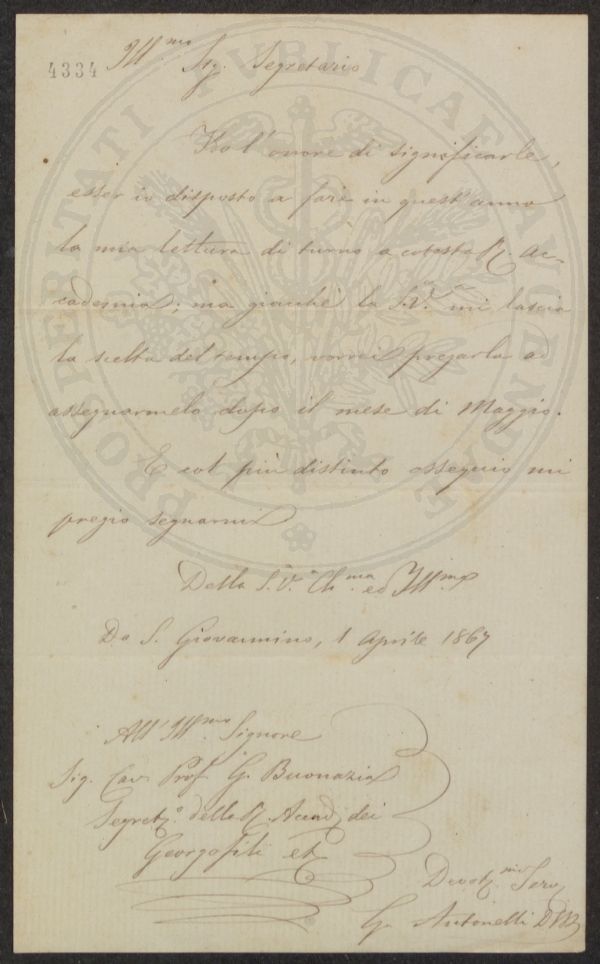 4334 Ill.mo Sig. Segretario
Ho l'onore di significarle,
esser io disposto a fare in quest'anno
la mia lettura di turno a cotesta R. Ac-
cademia; ma giacchè la S.V. mi lascia
la scelta del tempo, vorrei pregarla ad
assegnarmelo dopo il mese di Maggio.
E col più distinto ossequio mi
pregio segnarmi
Della S.V. Ch.ma ed Ill.ma
Da S. Giovannino, 1 Aprile 1867
All'Ill.mo Signore
Sig. Cav. Prof. G. Buonazia
Segret.o della R. Accad. dei
Georgofili
Devot.mo Serv.
G. Antonelli
PROSPERITATI PVBLICAE AVGENDAE